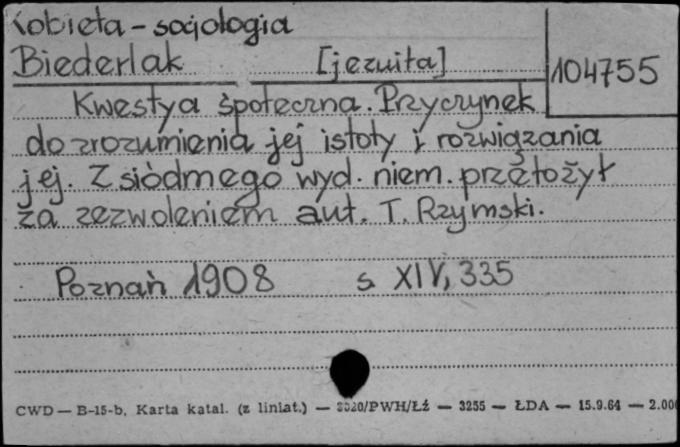 Kobieta - socjologia
Biederlak [jezuita]
104755
Kwestya społeczna. Przyczynek
do zrozumienia jej istoty i rozwiązania
jej. Z siódmego wyd. niem. przełożył
za zezwoleniem aut. T. Rzymski.
Poznań 1908 s. XIV, 335
CWD — B-15-b, Karta katal. (z liniat.) — 3020/PWH/Łż — 3255 — ŁDA — 15.9.64 — 2.000